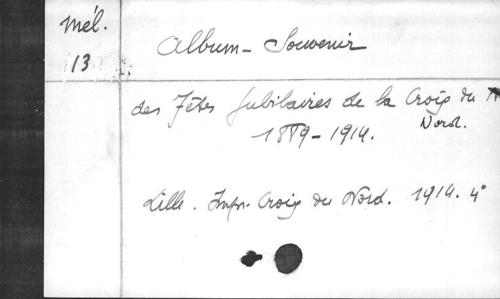 Mél.
13
Album - Souvenir
des Fêtes Jubilaires de la Croix du
Nord.
1889-1914.
Lille. Impr. Croix du Nord. 1914. 4°